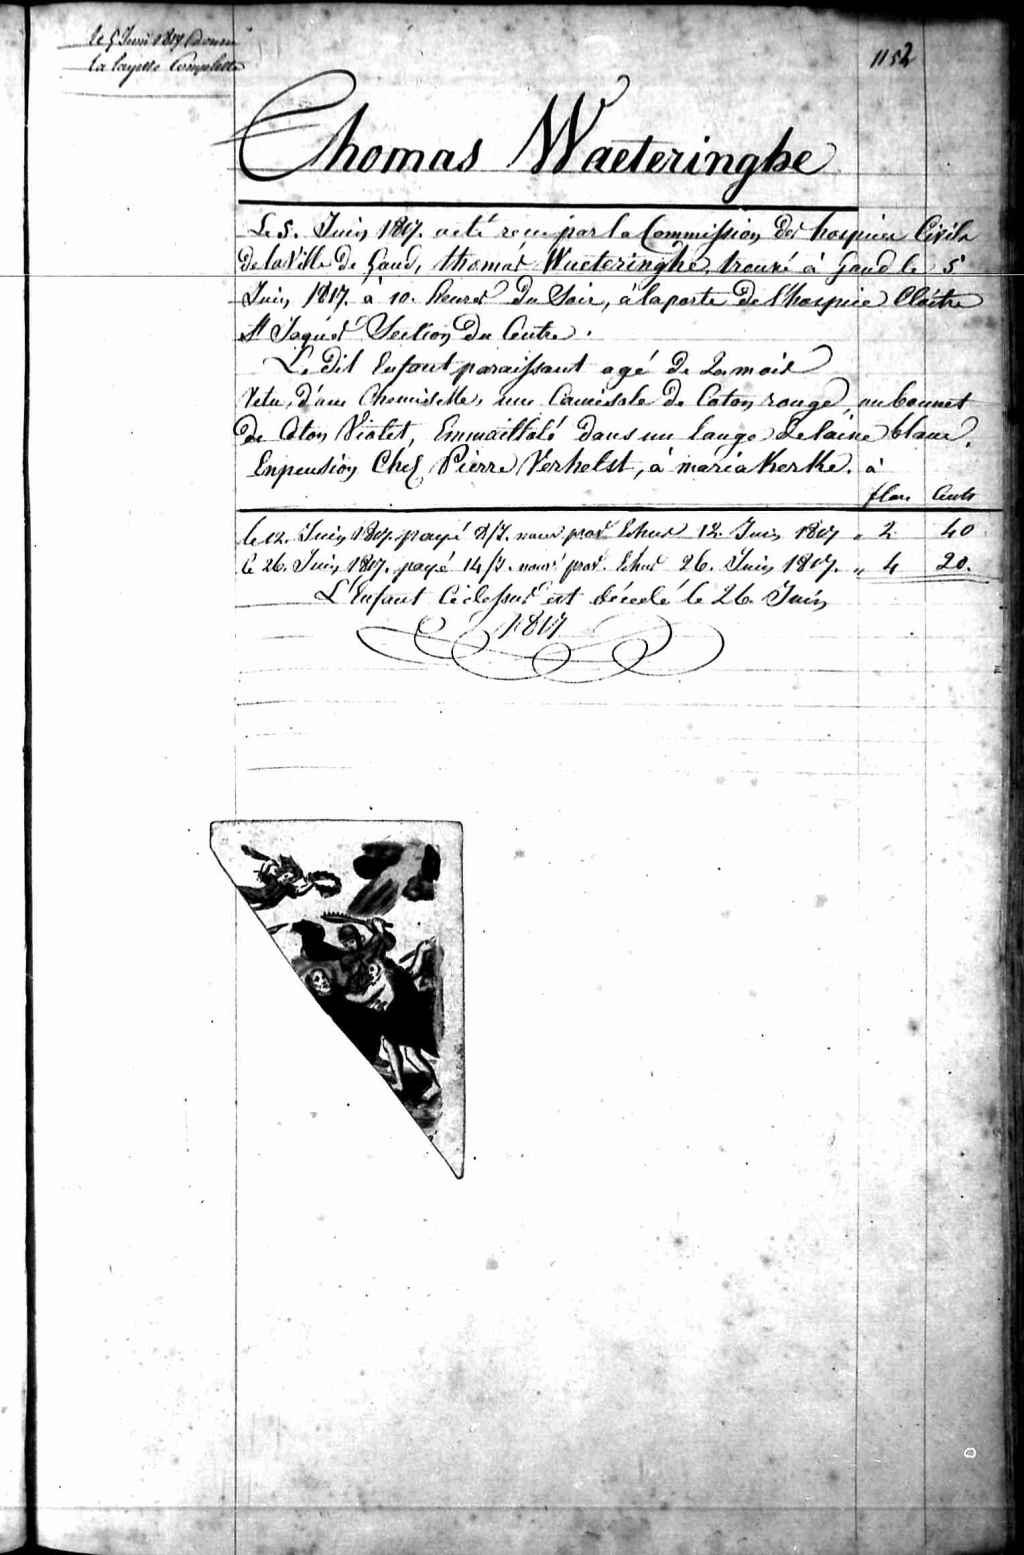 le 5 Juin 1817 Donné
la layette Complette
1152
Thomas Waeteringhe
Le 5. Juin 1817. a été recu par la Commission des hospices Civils
de la Ville de Gand, thomas Waeteringhe, trouvé à Gand le 5
Juin 1817. à 10. heures du Soir, à la porte de l'hospice Cloitre
St Jaques Section du Centre.
Le dit Enfant paraissant agé de 2 mois
Vetu, d'une Chemisette, une Camisole de Coton rouge, un bonnet
de Coton Violet, Emmaillolé dans un lange de laine blanc.
En pension Chez Pierre Verhelst, à mariakerke. à
flor. Cents
le 12. Juin 1817. payé 8/J. nour prov. Echus 12. Juin 1817 " 2 40
le 26. Juin 1817. payé 14/J. nour prov. Echus 26. Juin 1817. " 4 20.
L'Enfant Cidessus est décedé le 26. Juin
1817